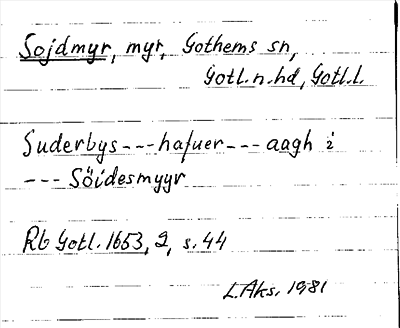 Sojdmyr, myr, Gothems sn,
Gotl.n.hd, Gotl.l.
Suderbys --- hafuer --- aagh i
--- Söidesmyyr
Rb Gotl. 1653, 2, s. 44
L.Aks. 1981